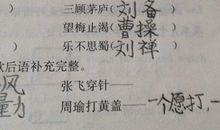 三顾茅庐(刘备
)
望梅止渴(曹操
)
乐不思蜀(刘禅
歇后语补充完整。
风
张飞穿针——
量力
周瑜打黄盖——一个愿打,一